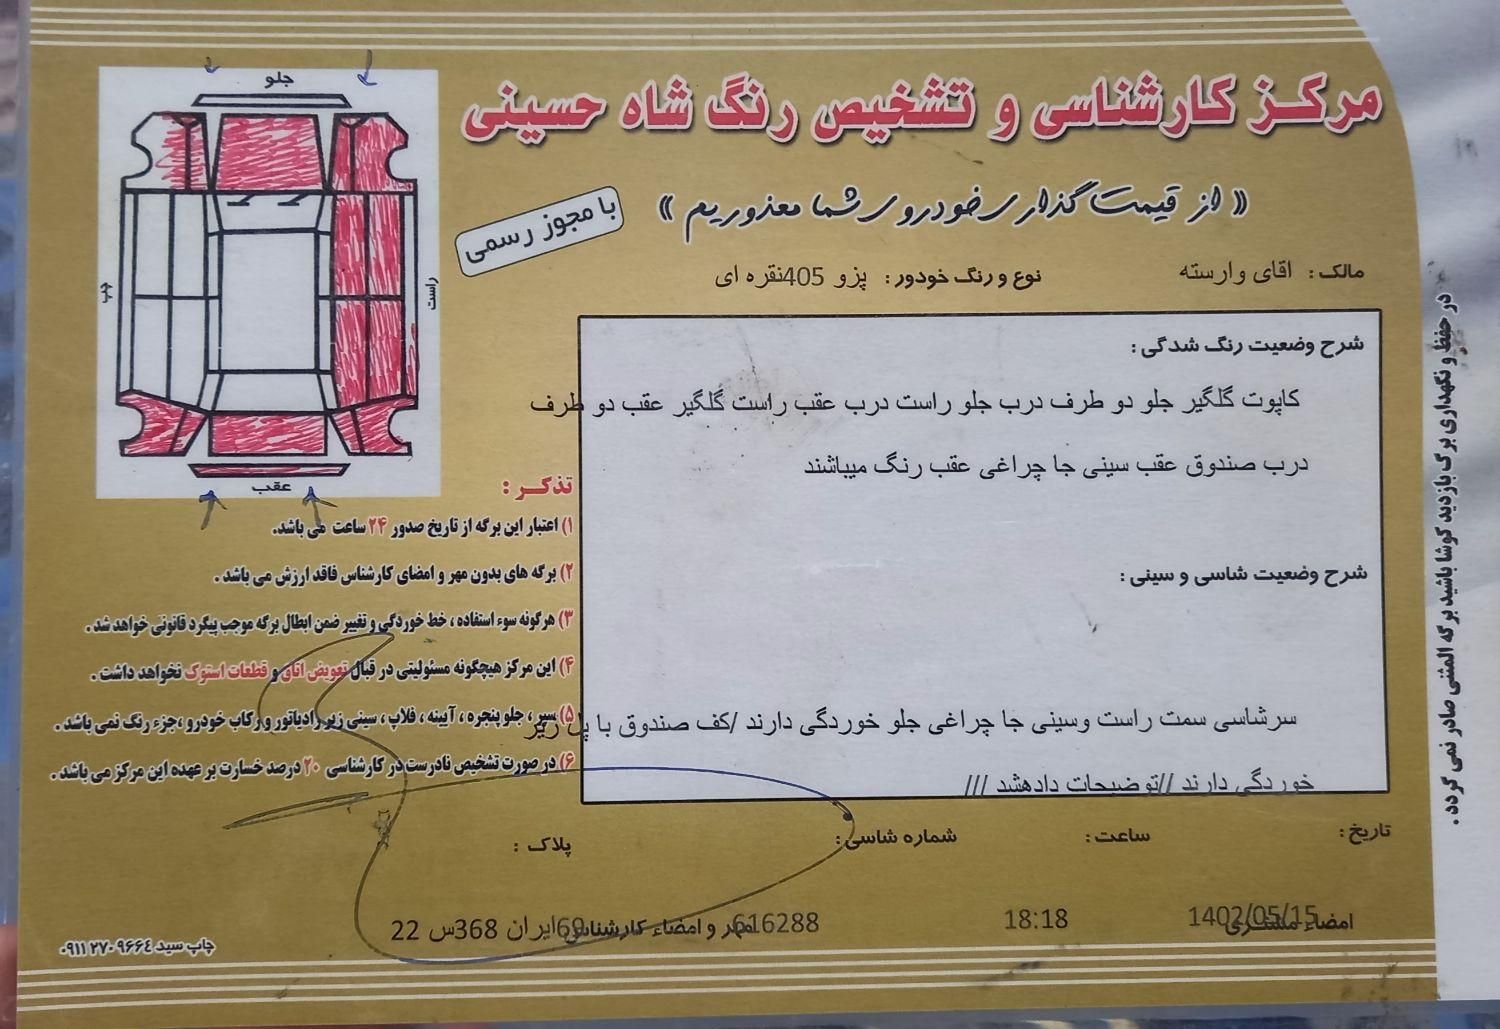 مرکز کارشناسی و تشخیص رنگ شاه حسینی
« از قیمت گذاری خودروی شما معذوریم »
با مجوز رسمی
جلو
چپ
راست
عقب
مالک : اقای وارسته
نوع و رنگ خودور : پزو 405نقره ای
شرح وضعیت رنگ شدگی :
کاپوت گلگیر جلو دو طرف درب جلو راست درب عقب راست گلگیر عقب دو طرف
درب صندوق عقب سینی جا چراغی عقب رنگ میباشند
شرح وضعیت شاسی و سینی :
سرشاسی سمت راست وسینی جا چراغی جلو خوردگی دارند /کف صندوق با پل زیر
خوردگی دارند //توضیحات دادهشد ///
تذکر :
۱) اعتبار این برگه از تاریخ صدور ۲۴ ساعت می باشد.
۲) برگه های بدون مهر و امضای کارشناس فاقد ارزش می باشد .
۳) هرگونه سوء استفاده ، خط خوردگی و تغییر ضمن ابطال برگه موجب پیگرد قانونی خواهد شد .
۴) این مرکز هیچگونه مسئولیتی در قبال تعویض اتاق و قطعات استوک نخواهد داشت .
۵) سپر ، جلو پنجره ، آیینه ، فلاپ ، سینی زیر رادیاتور و رکاب خودرو ،جزء رنگ نمی باشد .
۶) در صورت تشخیص نادرست در کارشناسی ۲۰ درصد خسارت بر عهده این مرکز می باشد .
تاریخ :
ساعت :
شماره شاسی :
پلاک :
امضاء مشتری
1402/05/15
18:18
616288
مهر و امضاء کارشناس
69ایران 368س 22
چاپ سید ۰۹۱۱۲۷۰۹۶۶۴
در حفظ و نگهداری برگ بازدید کوشا باشید برگه المثنی صادر نمی گردد .